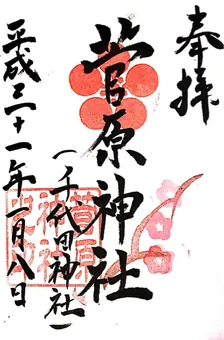 奉拝
菅原神社
(千代田神社)
平成三十一年一月八日